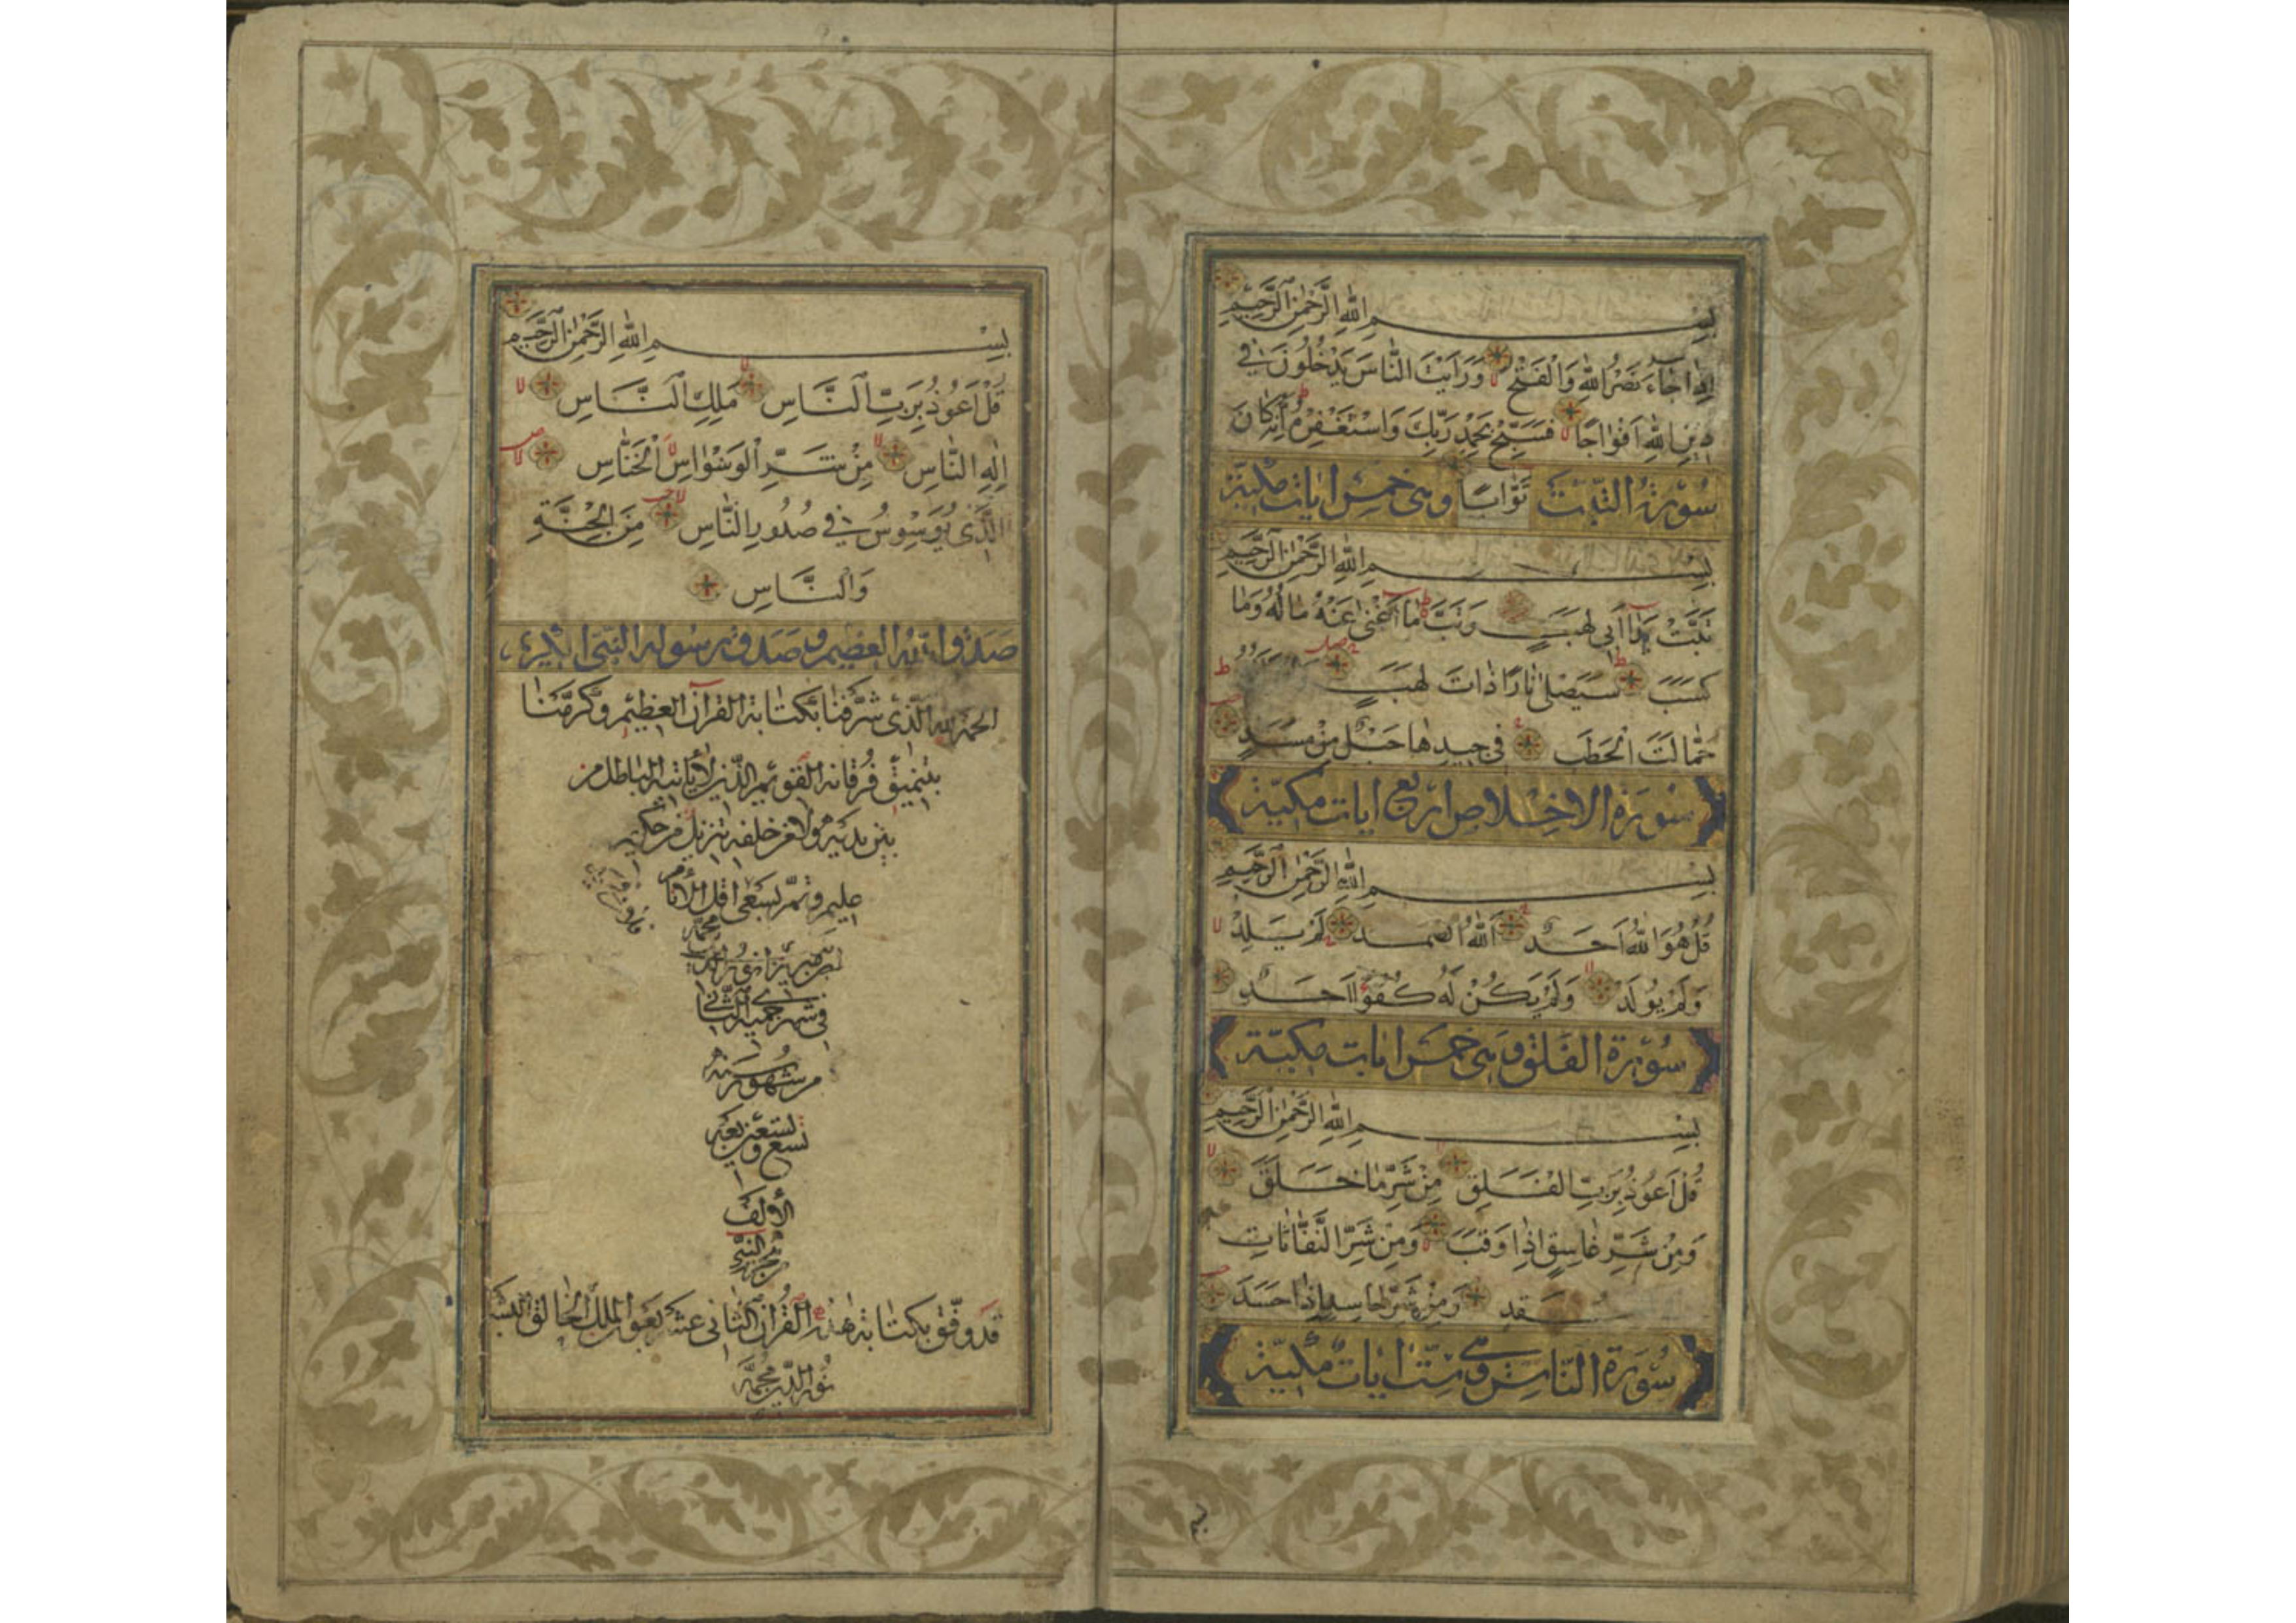 بِسْمِ اللّٰهِ الرَّحْمٰنِ الرَّحِيْمِ
اِذَا جَآءَ نَصْرُ اللّٰهِ وَالْفَتْحُ وَرَاَيْتَ النَّاسَ يَدْخُلُوْنَ فِيْ
دِيْنِ اللّٰهِ اَفْوَاجًا فَسَبِّحْ بِحَمْدِ رَبِّكَ وَاسْتَغْفِرْهُ اِنَّهُ كَانَ
سُوْرَةُ التَّبَّتْ تَوَّابًا وهي خمس ايات مكية
بِسْمِ اللّٰهِ الرَّحْمٰنِ الرَّحِيْمِ
تَبَّتْ يَدَآ اَبِيْ لَهَبٍ وَتَبَّ مَآ اَغْنٰى عَنْهُ مَالُهُ وَمَا
كَسَبَ سَيَصْلٰى نَارًا ذَاتَ لَهَبٍ
حَمَّالَتَ الْحَطَبِ فِيْ جِيْدِهَا حَبْلٌ مِنْ مَسَدٍ
سُوْرَةُ الاخلاص اربع ايات مكيّة
بِسْمِ اللّٰهِ الرَّحْمٰنِ الرَّحِيْمِ
قُلْ هُوَ اللّٰهُ اَحَدٌ اَللّٰهُ الصَّمَدُ لَمْ يَلِدْ
وَلَمْ يُوْلَدْ وَلَمْ يَكُنْ لَهُ كُفُوًا اَحَدٌ
سُوْرَةُ الفَلَق وهي خمس ايات مكيّة
بِسْمِ اللّٰهِ الرَّحْمٰنِ الرَّحِيْمِ
قُلْ اَعُوْذُ بِرَبِّ الْفَلَقِ مِنْ شَرِّ مَا خَلَقَ
وَمِنْ شَرِّ غَاسِقٍ اِذَا وَقَبَ وَمِنْ شَرِّ النَّفَّاثَاتِ
عقد وَمِنْ شَرِّ حَاسِدٍ اِذَا حَسَدَ
سُوْرَةُ النَّاسِ وهي ستّ ايات مكيّة
بِسْمِ اللّٰهِ الرَّحْمٰنِ الرَّحِيْمِ
قُلْ اَعُوْذُ بِرَبِّ النَّاسِ مَلِكِ النَّاسِ
اِلٰهِ النَّاسِ مِنْ شَرِّ الْوَسْوَاسِ الْخَنَّاسِ
الَّذِيْ يُوَسْوِسُ فِيْ صُدُوْرِ النَّاسِ مِنَ الْجِنَّةِ
وَالنَّاسِ
صدق الله العظيم وصدق رسوله النبي الكريم
الحمد لله الّذى شرّفنا بكتابة القرآن العظيم وكرّمنا
بتنميق فرقانه القويم الّذى لا ياتيه الباطل من
بين يديه ولا من خلفه تنزيل من حكيم
عليم وتمّ بسعى اقل الانام
فى شهر جميد الثانى
من شهور سنة
تسع وتسعين بعد
الألف
من هجرة النبي
قد وفّق بكتابة هذه القرآن الثانى عشر بعون الملك الخالق البشر
نور الدّين محمّد